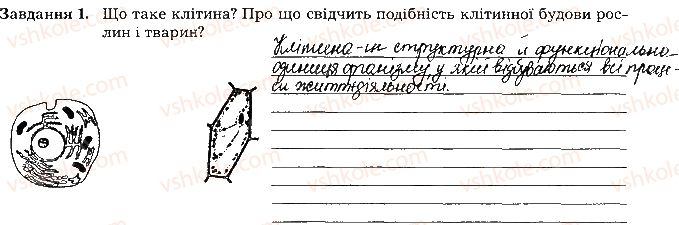 Завдання 1. Що таке клітина? Про що свідчить подібність клітинної будови рос-
лин і тварин?
Клітина-це структурна й функціональна
одиниця організму у якій відбуваються всі проце-
си життєдіяльности.
vshkole.com